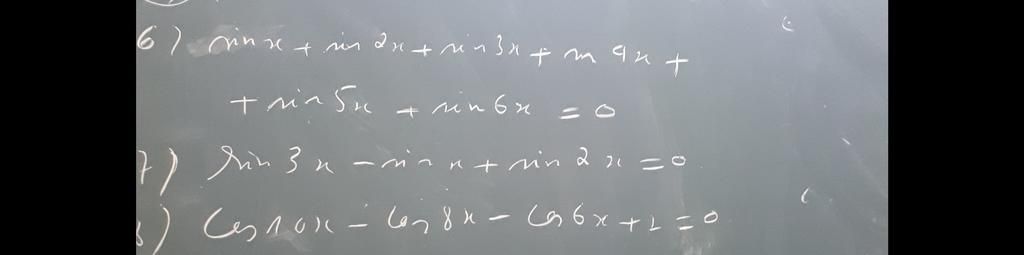 6) sin x + sin 2x + sin 3x + sin 4x +
+ sin 5x + sin 6x = 0
7) sin 3x - sin x + sin 2x = 0
8) cos 10x - cos 8x - cos 6x + 1 = 0